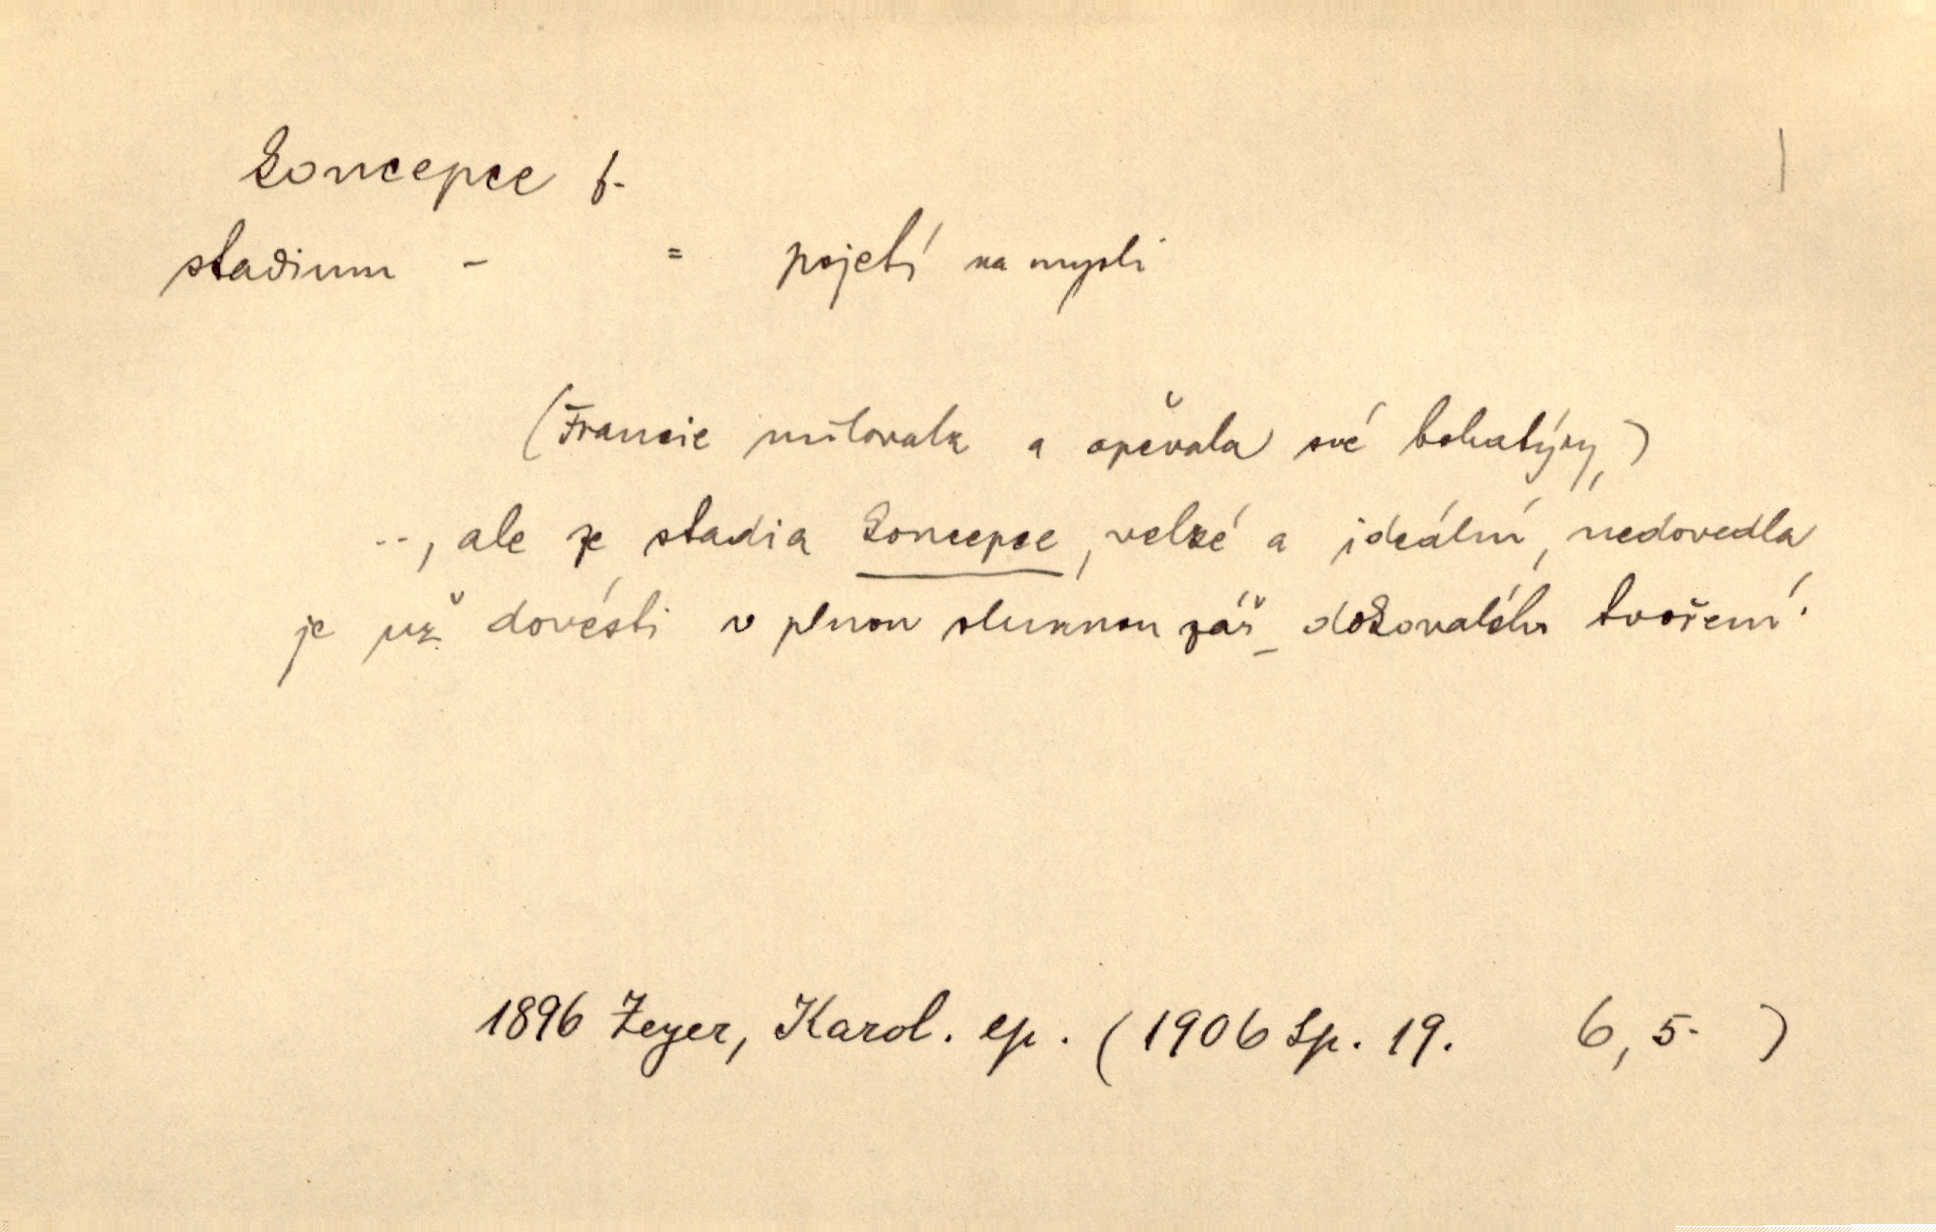 koncepce f.
stadium - = pojetí na mysli
(Francie milovala a opěvala své bohatýry,)
.., ale ze stadia koncepce, velké a ideální, nedovedla
je už dovésti v plnou slunnou zář dokonalého tvoření.
1896 Zeyer, Karol. ep. (1906 Sp. 19. 6, 5. )